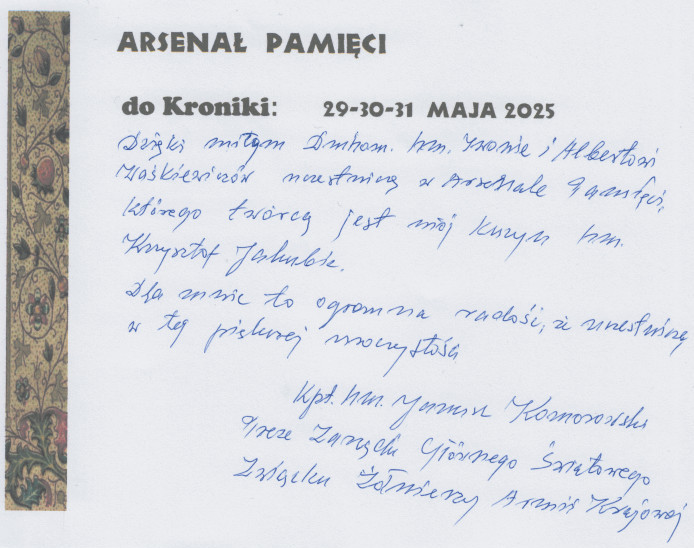 ARSENAŁ PAMIĘCI
do Kroniki: 29-30-31 MAJA 2025
Dzięki miłym Druhom. hm. Iwonie i Albertowi
Waśkiewiczów uczestniczę w Arsenale Pamięci,
którego twórcą jest mój kuzyn hm.
Krzysztof Jakubik.
Dla mnie to ogromna radość, że uczestniczę
w tej pięknej uroczystości
Kpt. hm. Janusz Komorowski
Prezes Zarządu Głównego Światowego
Związku Żołnierzy Armii Krajowej